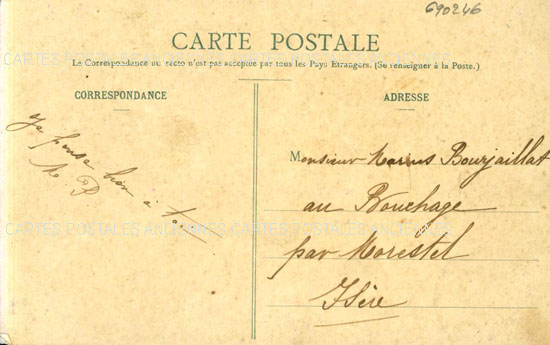 690246
CARTE POSTALE
La Correspondance au recto n'est pas acceptée par tous les Pays Etrangers. (Se renseigner à la Poste.)
CORRESPONDANCE
ADRESSE
CARTES POSTALES ANCIENNES CARTES POSTALES ANCIENNES
Je pense bien à toi
M P
Monsieur Marius Bourjaillat
au Bouchage
par Morestel
Isère
CARTES POSTALES ANCIENNES CARTES POSTALES ANCIENNES